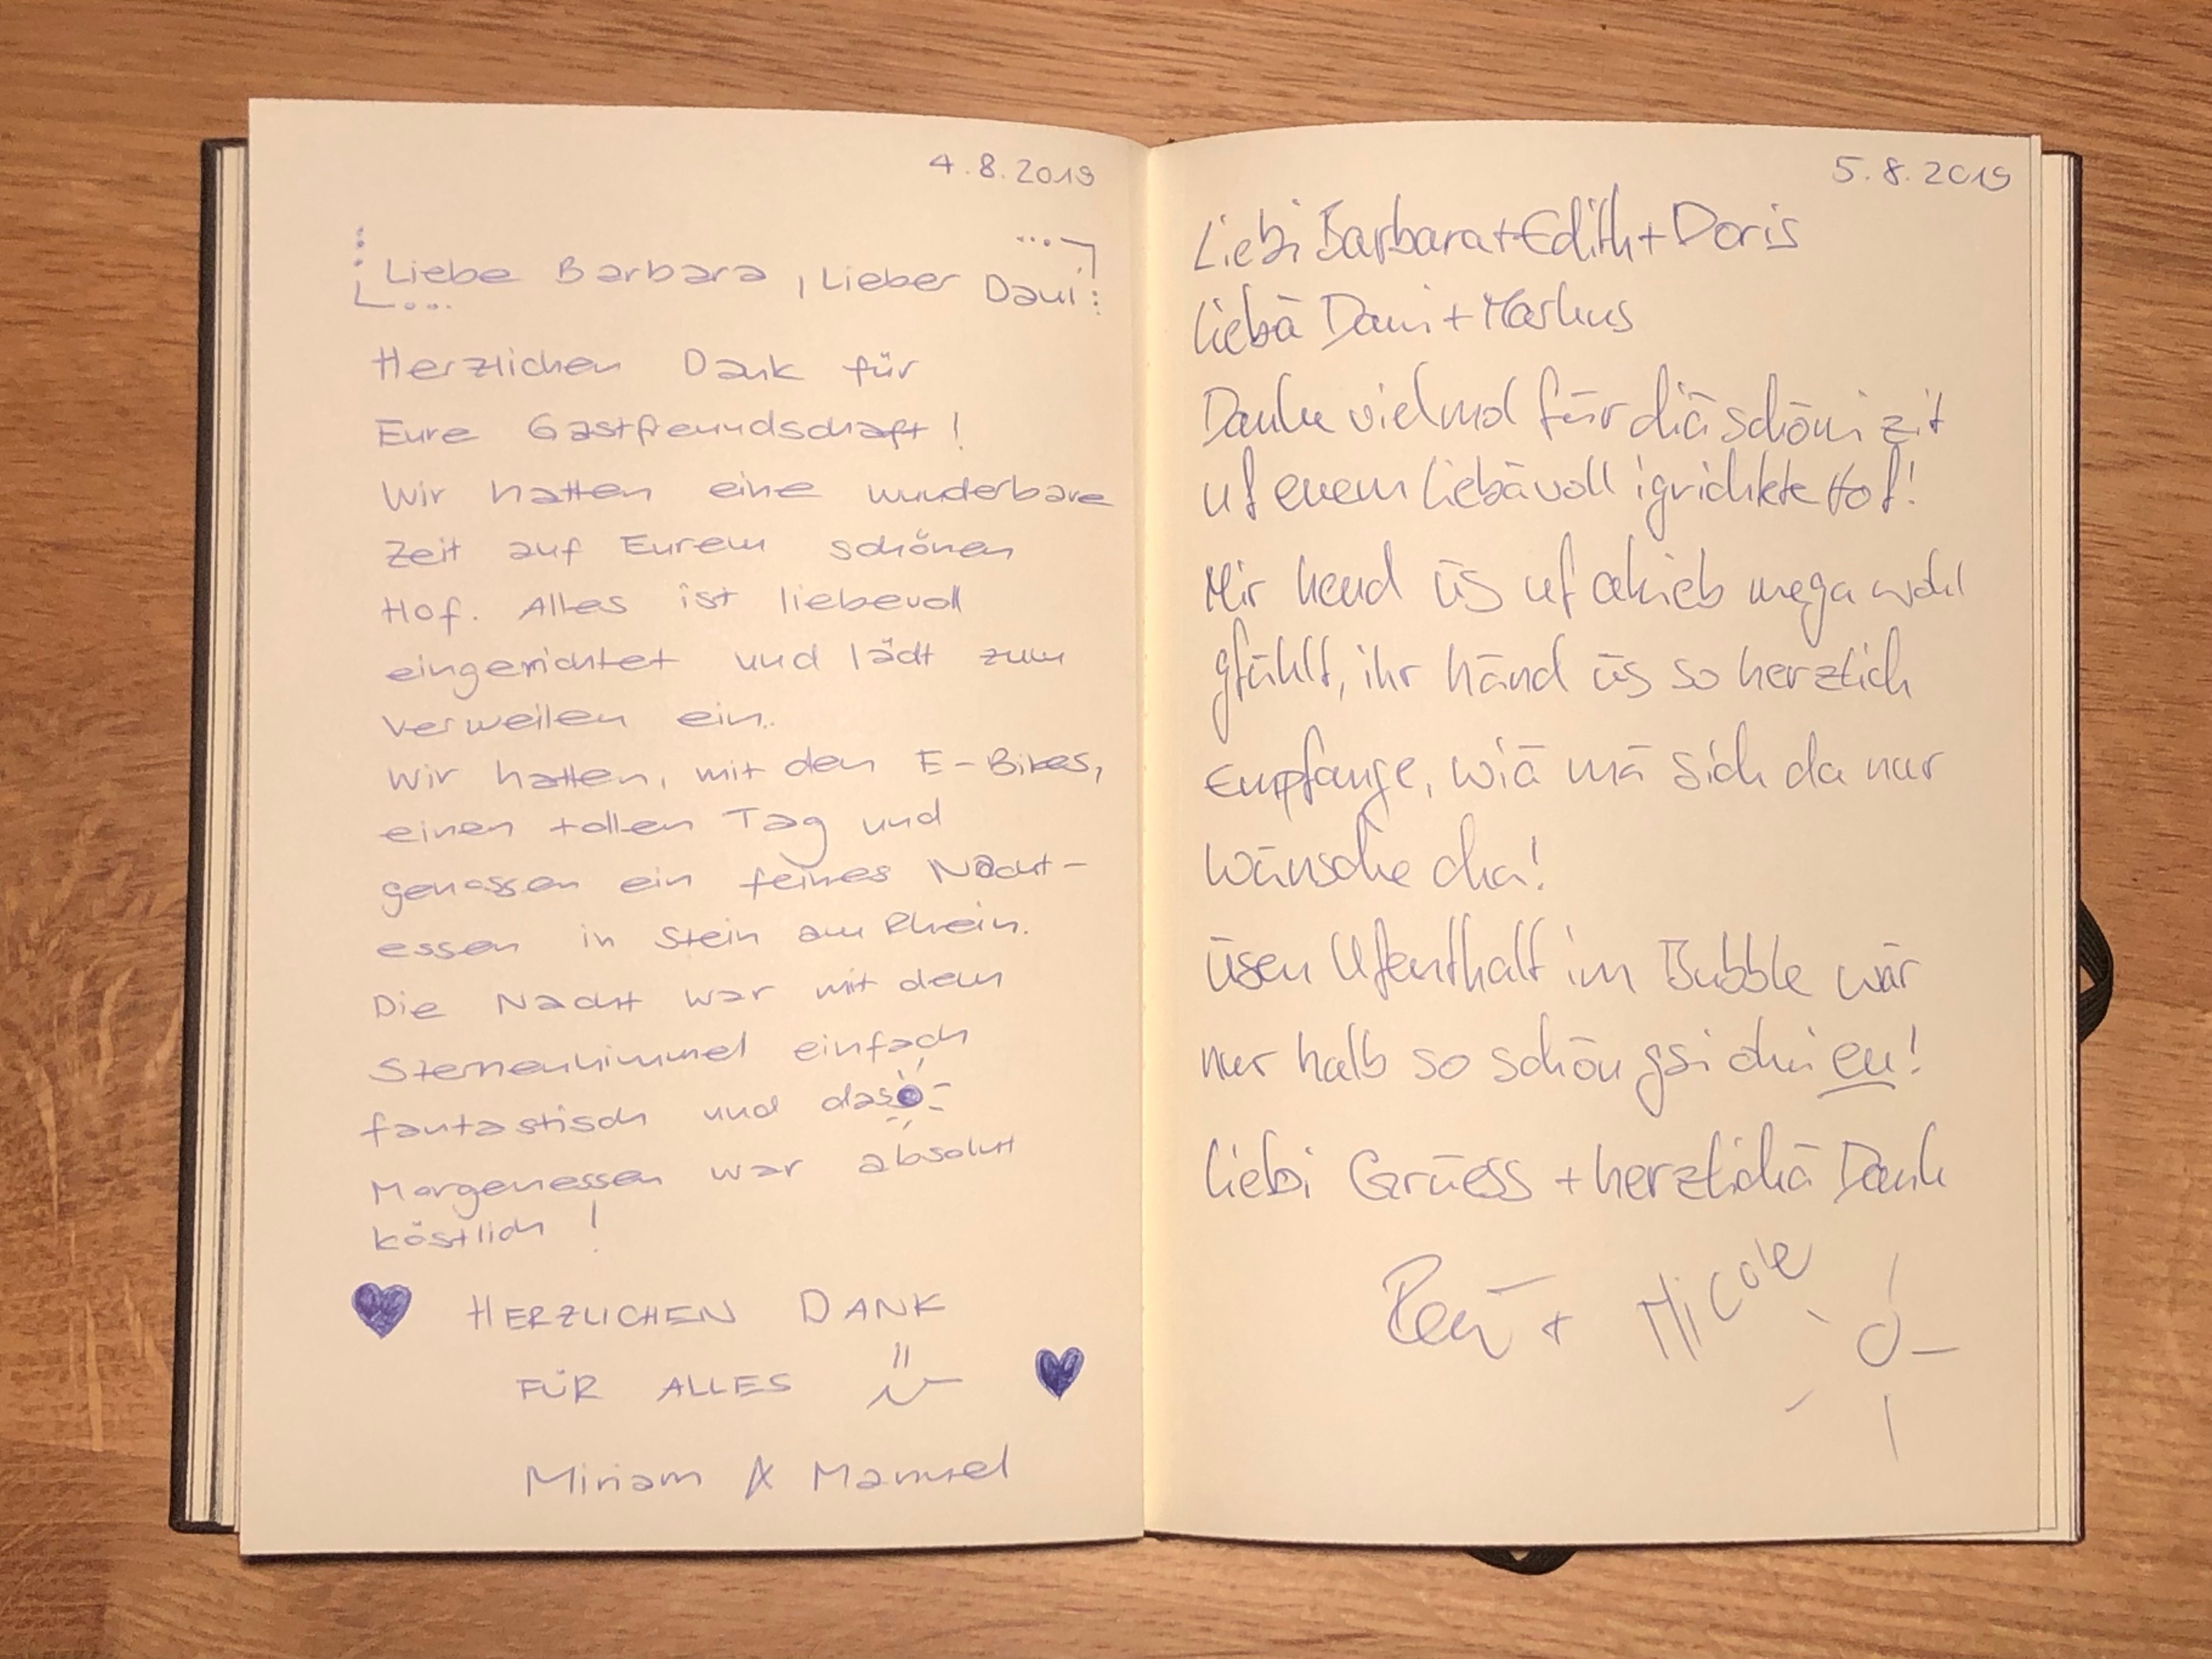 4.8.2019
Liebe Barbara, Lieber Dani:
Herzlichen Dank für
Eure Gastfreundschaft!
Wir hatten eine wunderbare
Zeit auf Eurem schönen
Hof. Alles ist liebevoll
eingerichtet und lädt zum
verweilen ein.
Wir hatten, mit den E-Bikes,
einen tollen Tag und
genossen ein feines Nacht-
essen in Stein am Rhein.
Die Nacht war mit dem
Sternenhimmel einfach
fantastisch und das
Morgenessen war absolut
köstlich!
HERZLICHEN DANK
FÜR ALLES
Miriam & Manuel
5.8.2019
Liebi Barbara+Edith+Doris
Liebä Dani+Markus
Danke vielmol für diä schöni zit
uf euem liebävoll igrichtete Hof!
Mir hend üs uf ahieb mega wohl
gfühlt, ihr händ üs so herzlich
Empfange, wiä mä sich da nur
wünsche cha!
Üsen Ufenthalt im Bubble wär
nur halb so schön gsi ohni eu!
Liebi Grüess + herzlichä Dank
+ Nicole